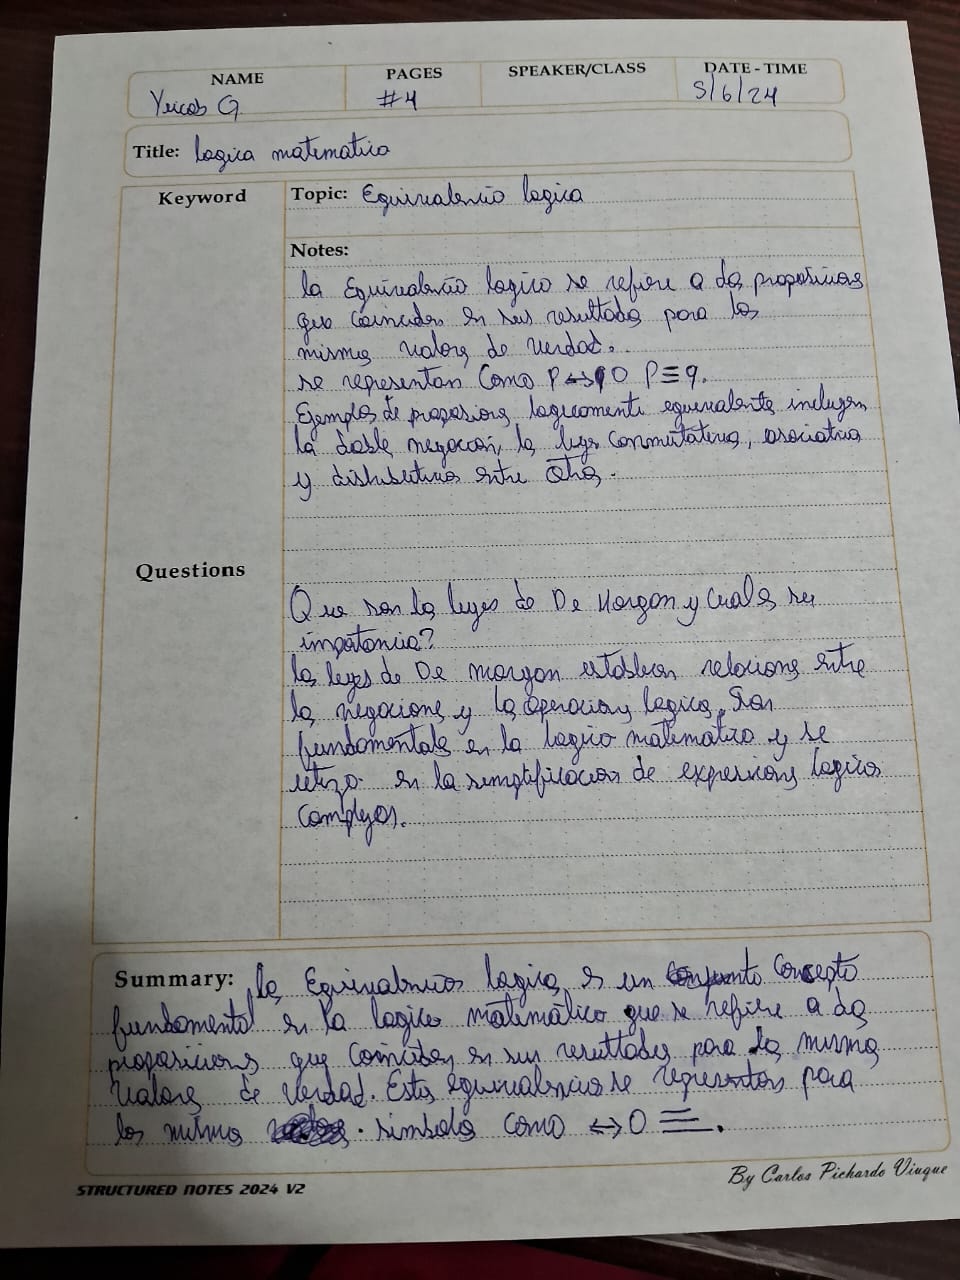 NAME
PAGES
SPEAKER/CLASS
DATE - TIME
Yeicob G.
#4
5/6/24
Title: Logica matematica
Keyword
Topic: Equivalencia logica
Notes:
la Equivalencia logica se refiere a dos proposiciones
que coinciden en sus resultados para los
mismos valores de verdad.
se representan como P↔q O P≡q.
Ejemplos de proposiciones logicamente equivalente incluyen
la doble negacion, las leyes conmutativa, asociativa
y distributivas entre Otras.
Questions
Que son las leyes de De Morgan y cual es su
importancia?
las leyes de De morgan establecen relaciones entre
las negaciones y las operaciones logicas. Son
fundamentales en la logica matematica y se
utiliza en la simplificacion de expresiones logicas
complejas.
Summary: la Equivalencia logica es un Concepto
fundamental en la logica matemática que se refiere a dos
proposiciones que coinciden en sus resultados para los mismos
valores de verdad. Estas equivalencias se representan para
los mismos simbolos como ↔ O ≡.
STRUCTURED NOTES 2024 V2
By Carlos Pichardo Viuque